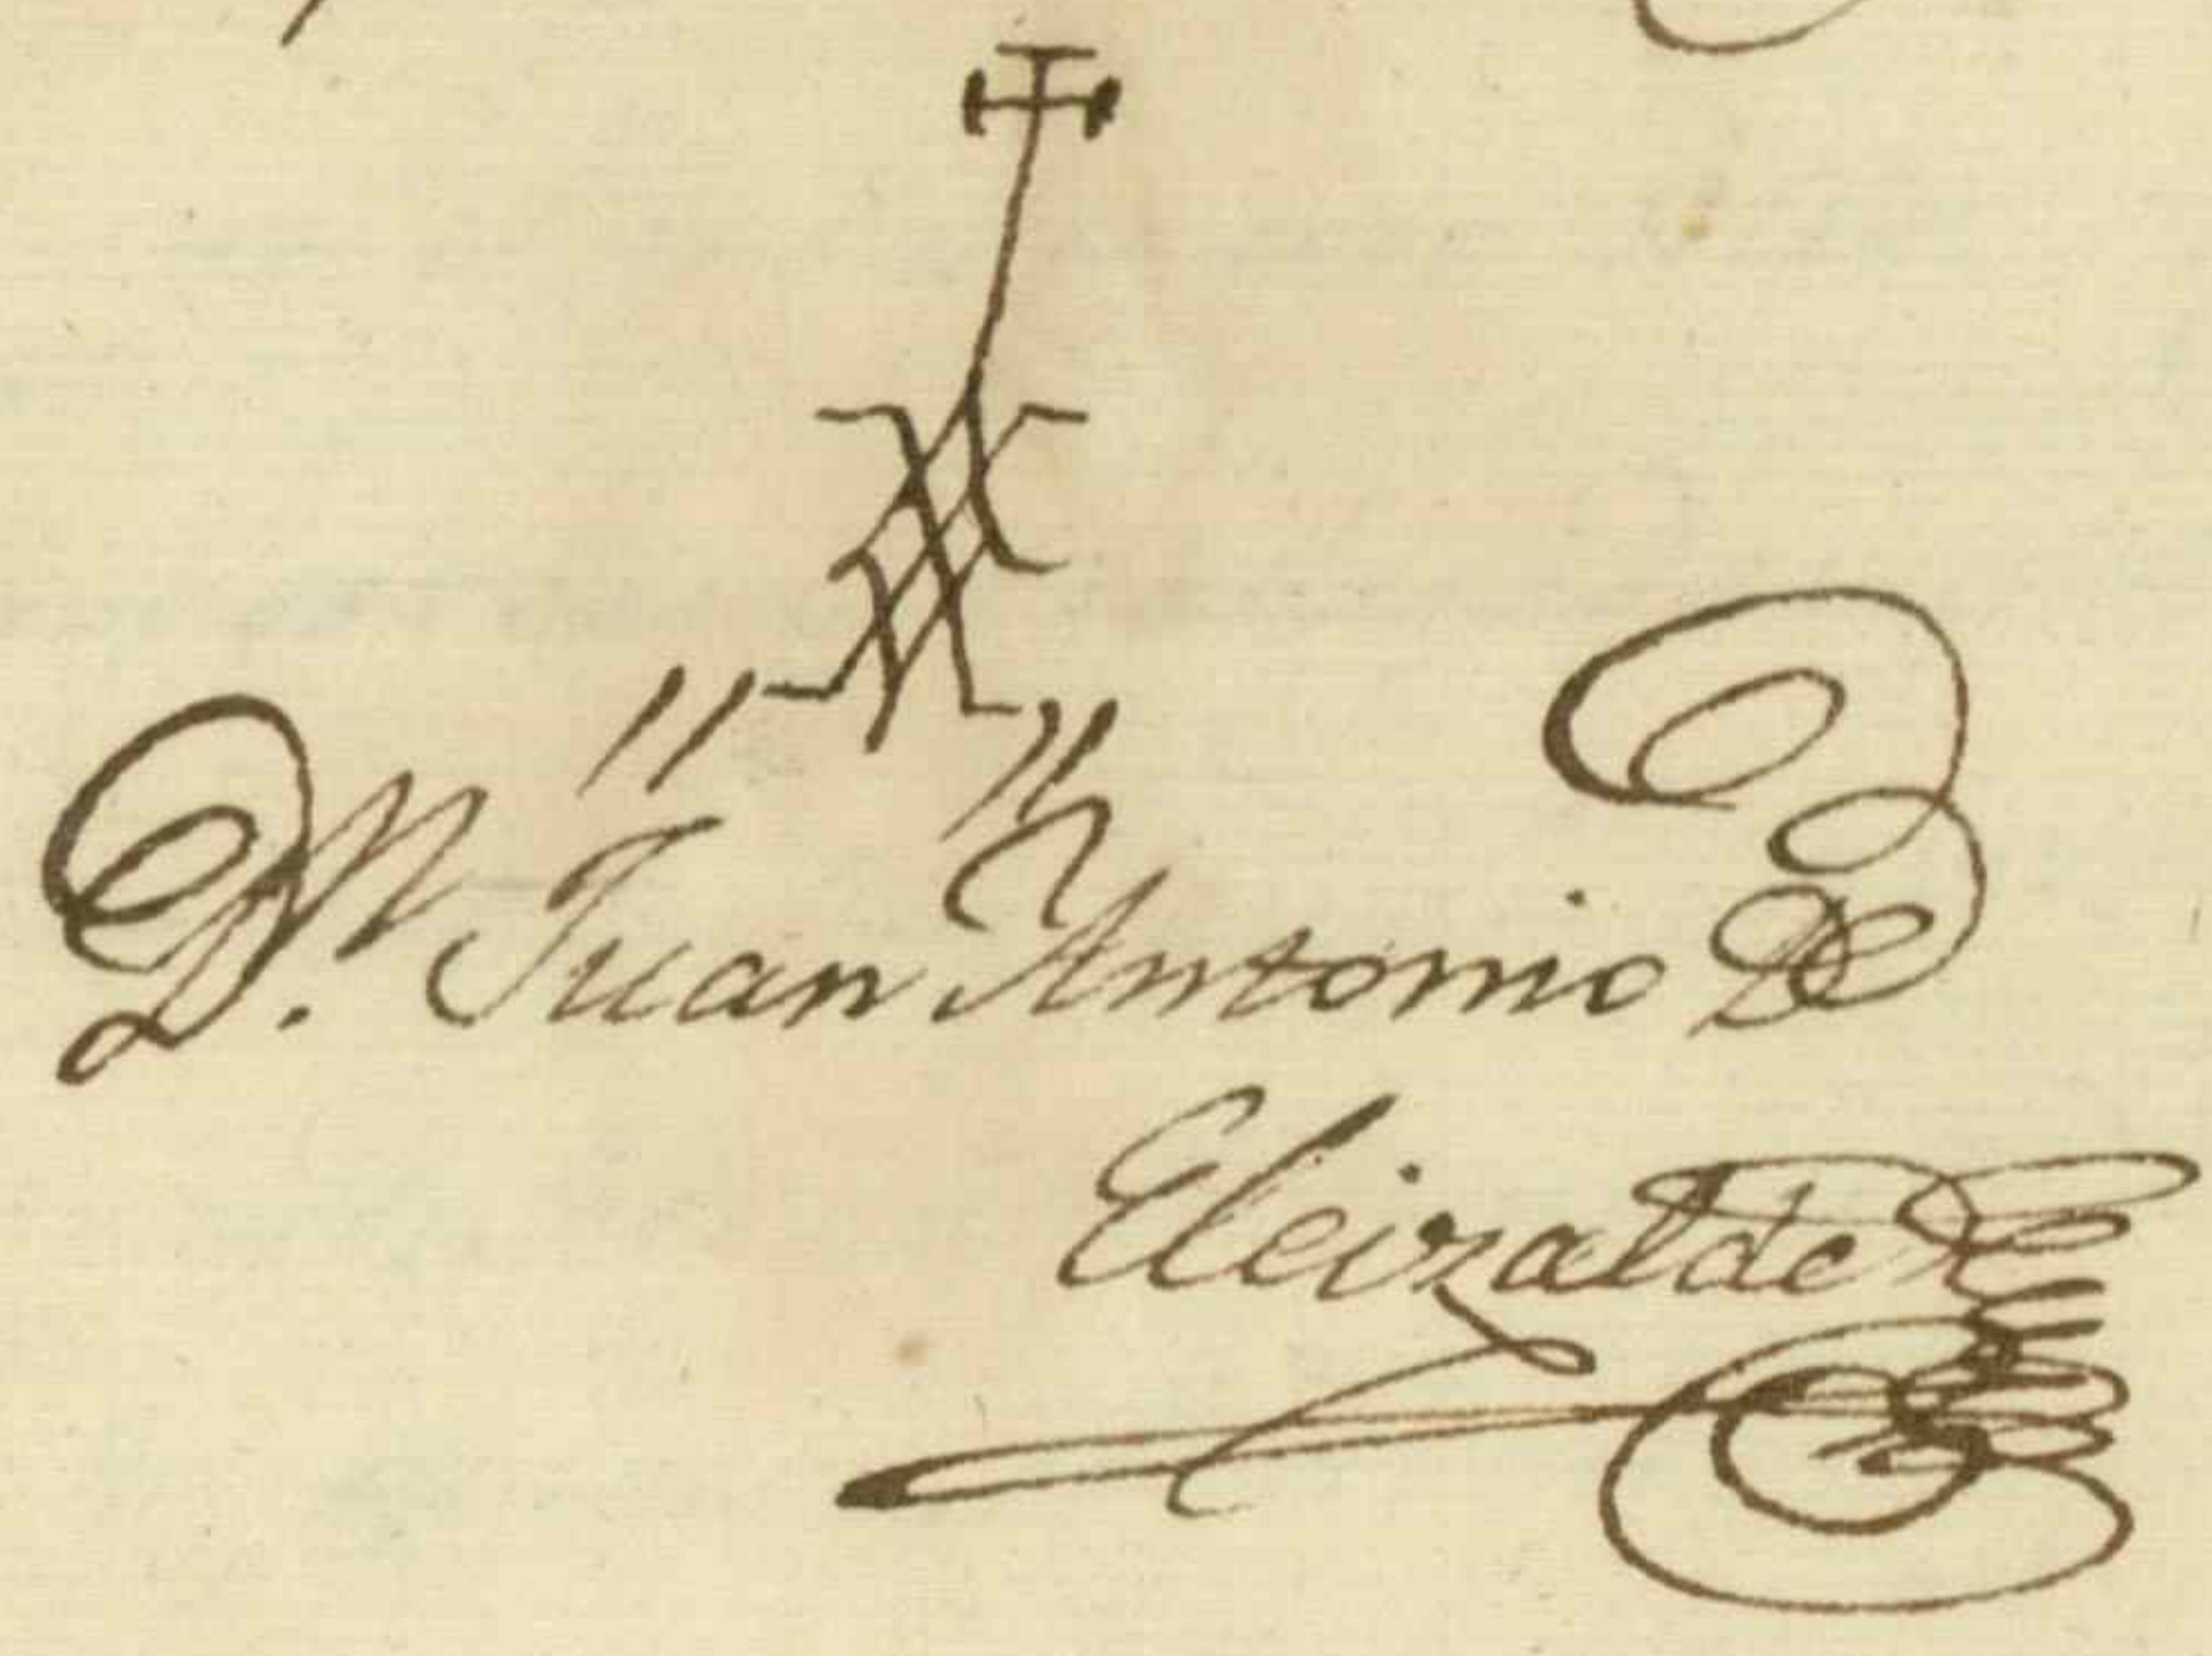 Dn. Juan Antonio De
Eleizalde